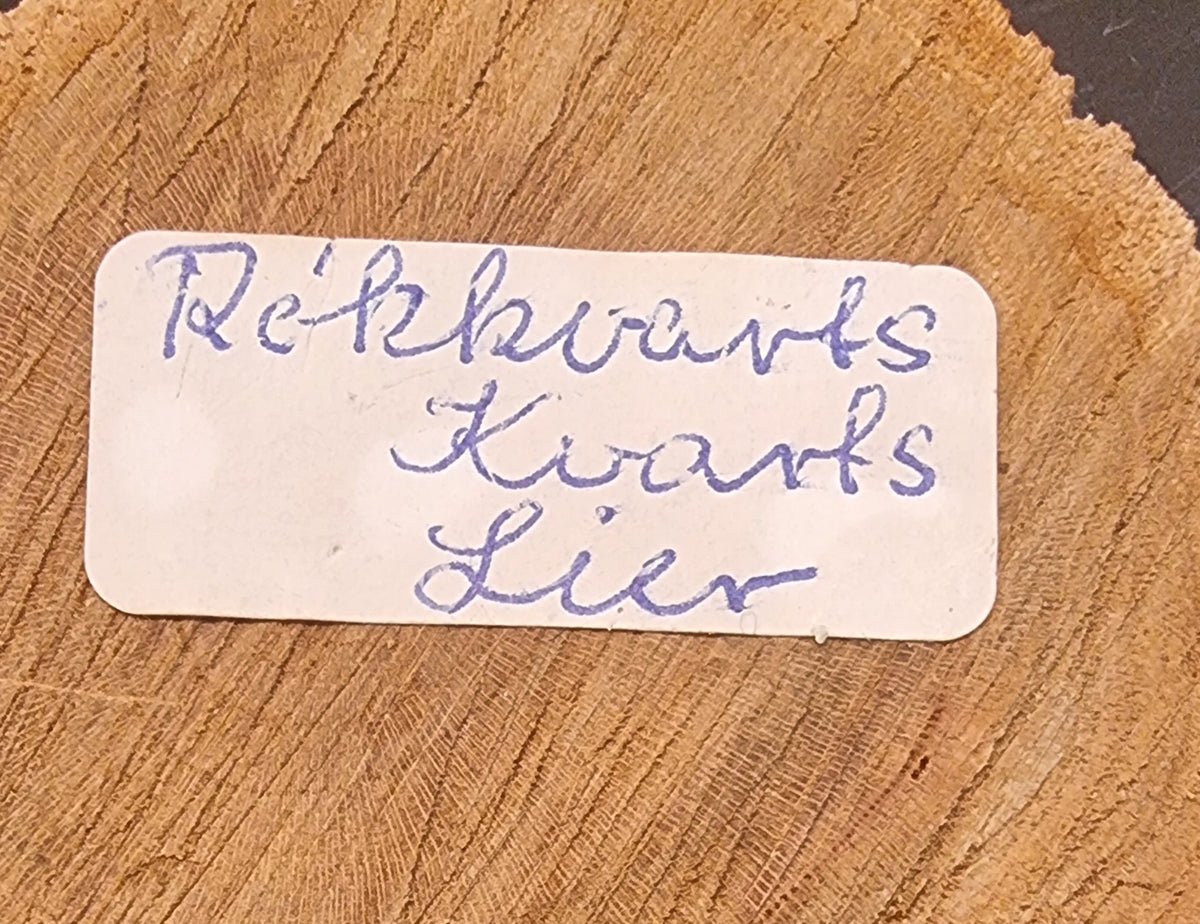 Rókkvarts
Kvarts
Lier